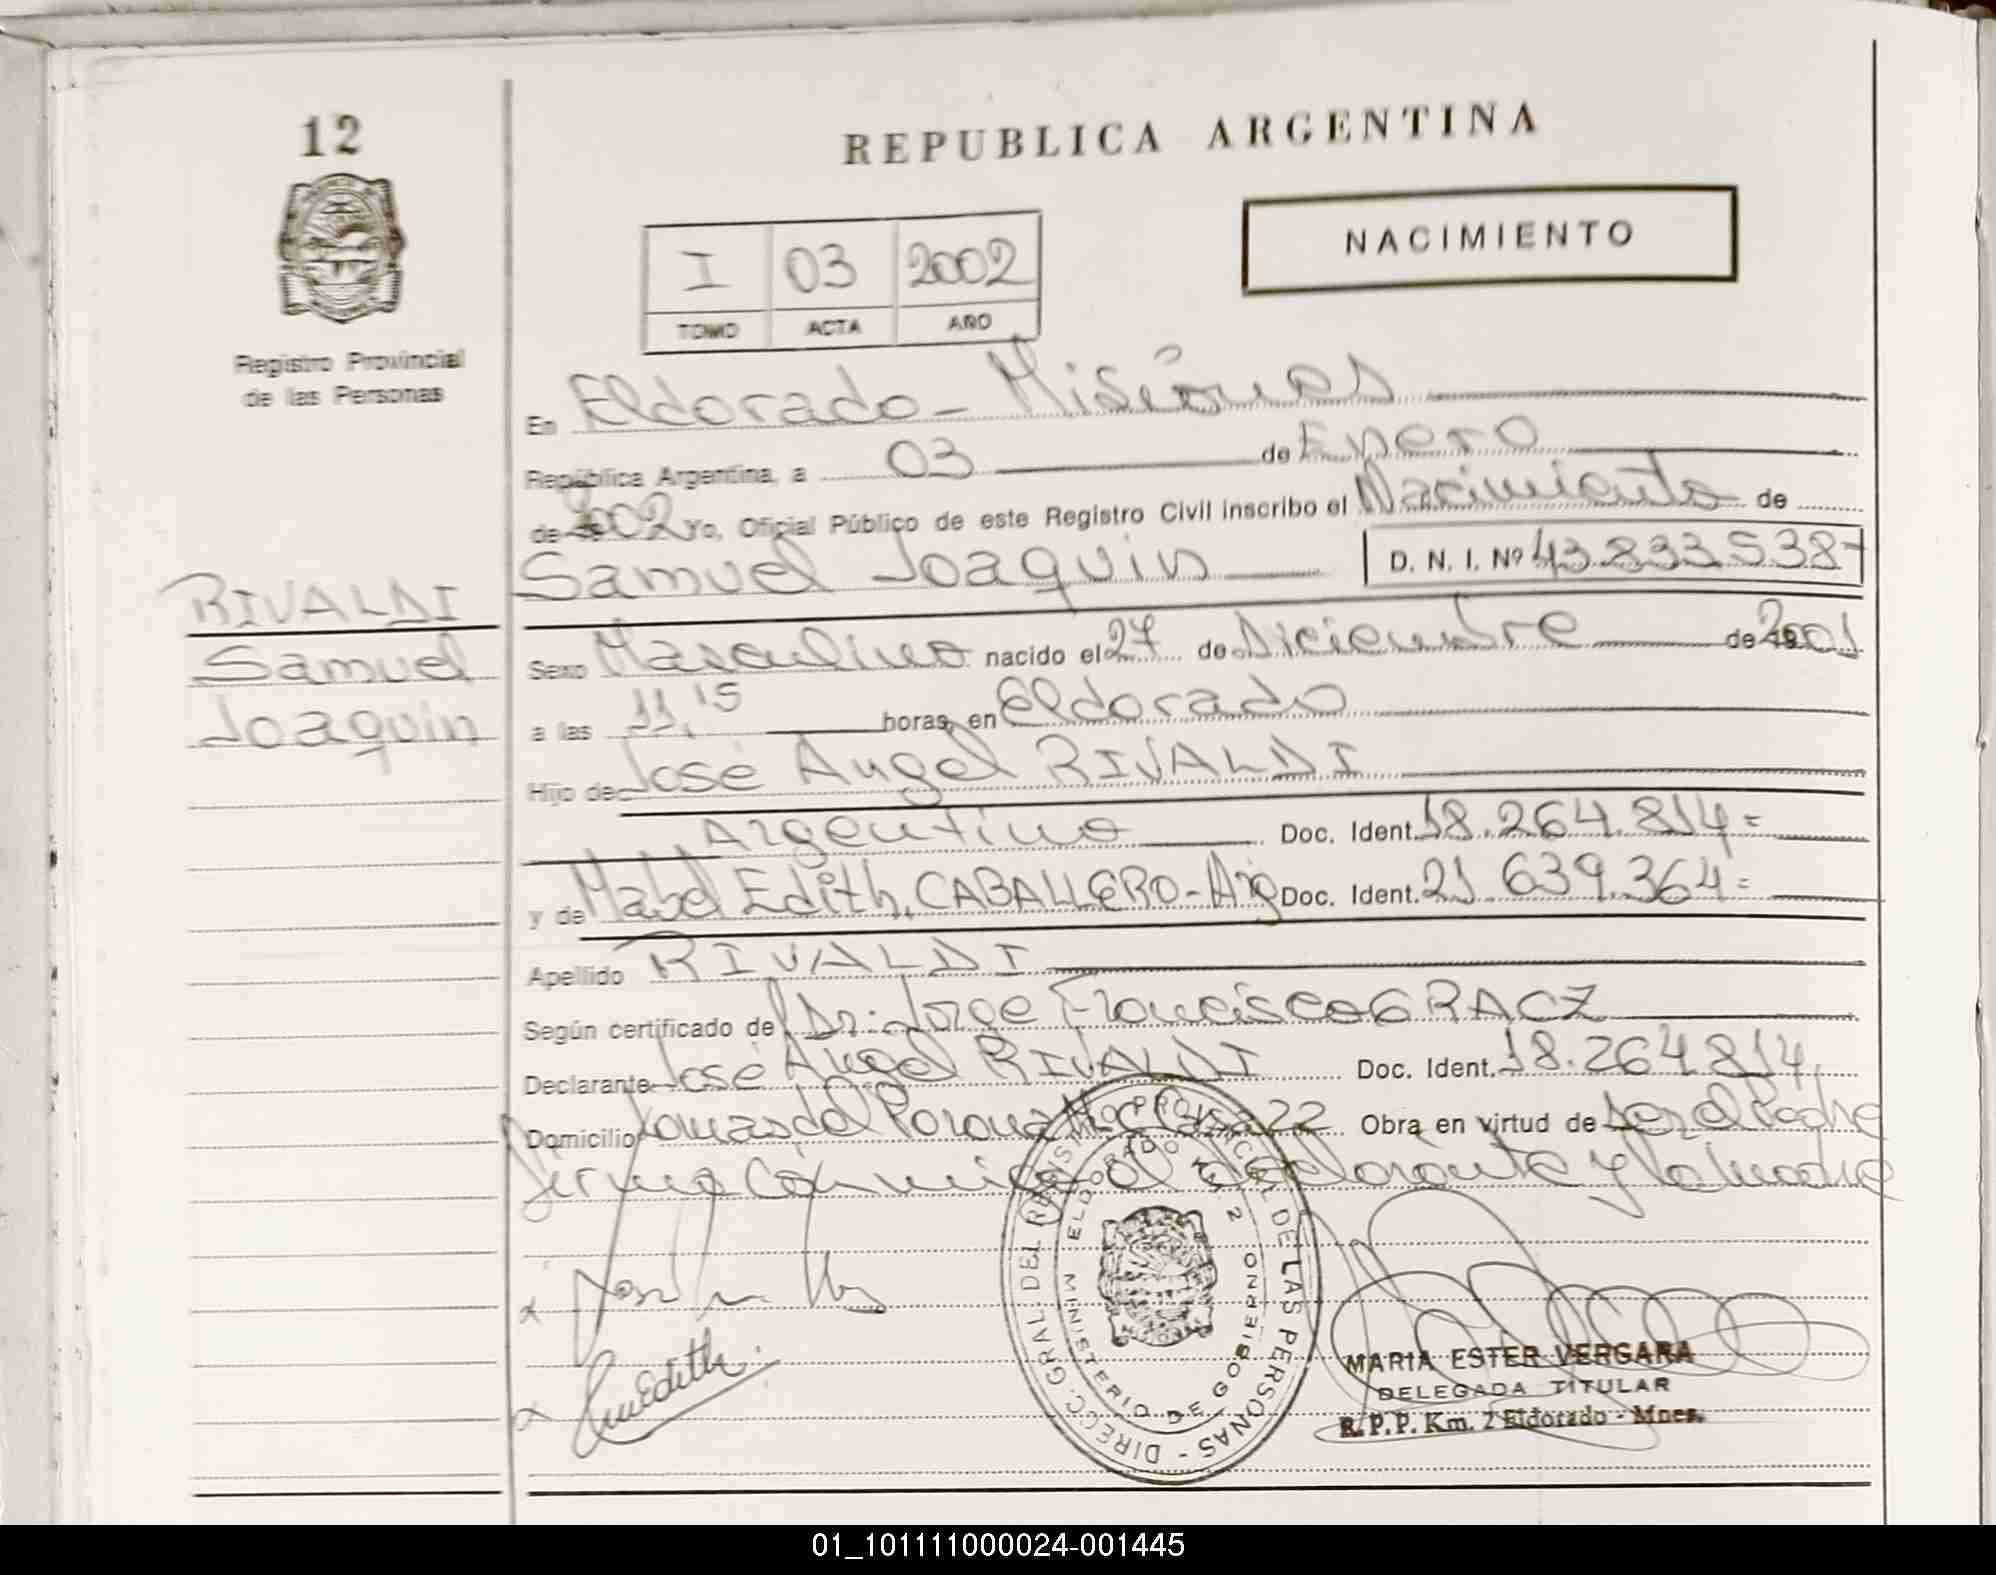 12
REPUBLICA ARGENTINA
NACIMIENTO
I 03 2002
TOMO ACTA AÑO
Registro Provincial
de las Personas
En Eldorado - Misiones
República Argentina, a 03 de Enero
de 2002 Yo, Oficial Público de este Registro Civil inscribo el Nacimiento de
Samuel Joaquin D. N. I. Nº 43.833.538-
RIVALDI
Samuel
Joaquin
Sexo Masculino nacido el 27 de Diciembre de 2001
a las 11,15 horas, en Eldorado
Hijo de José Angel RIVALDI
Argentino Doc. Ident. 18.264.814=
y de Mabel Edith, CABALLERO-Arg Doc. Ident. 21.639.364=
Apellido RIVALDI
Según certificado de Dr. Jorge Francisco GRACZ
Declarante José Angel RIVALDI Doc. Ident. 18.264.814,
Domicilio Obra en virtud de ser el Padre
firma el declarante y la madre
DIRECC. GRAL DEL REGISTRO PROVINCIAL DE LAS PERSONAS -
MINISTERIO DE GOBIERNO
ELDORADO KM 2
Edith
MARIA ESTER VERGARA
DELEGADA TITULAR
R.P.P. Km. 2 Eldorado - Mnes.
01_101111000024-001445